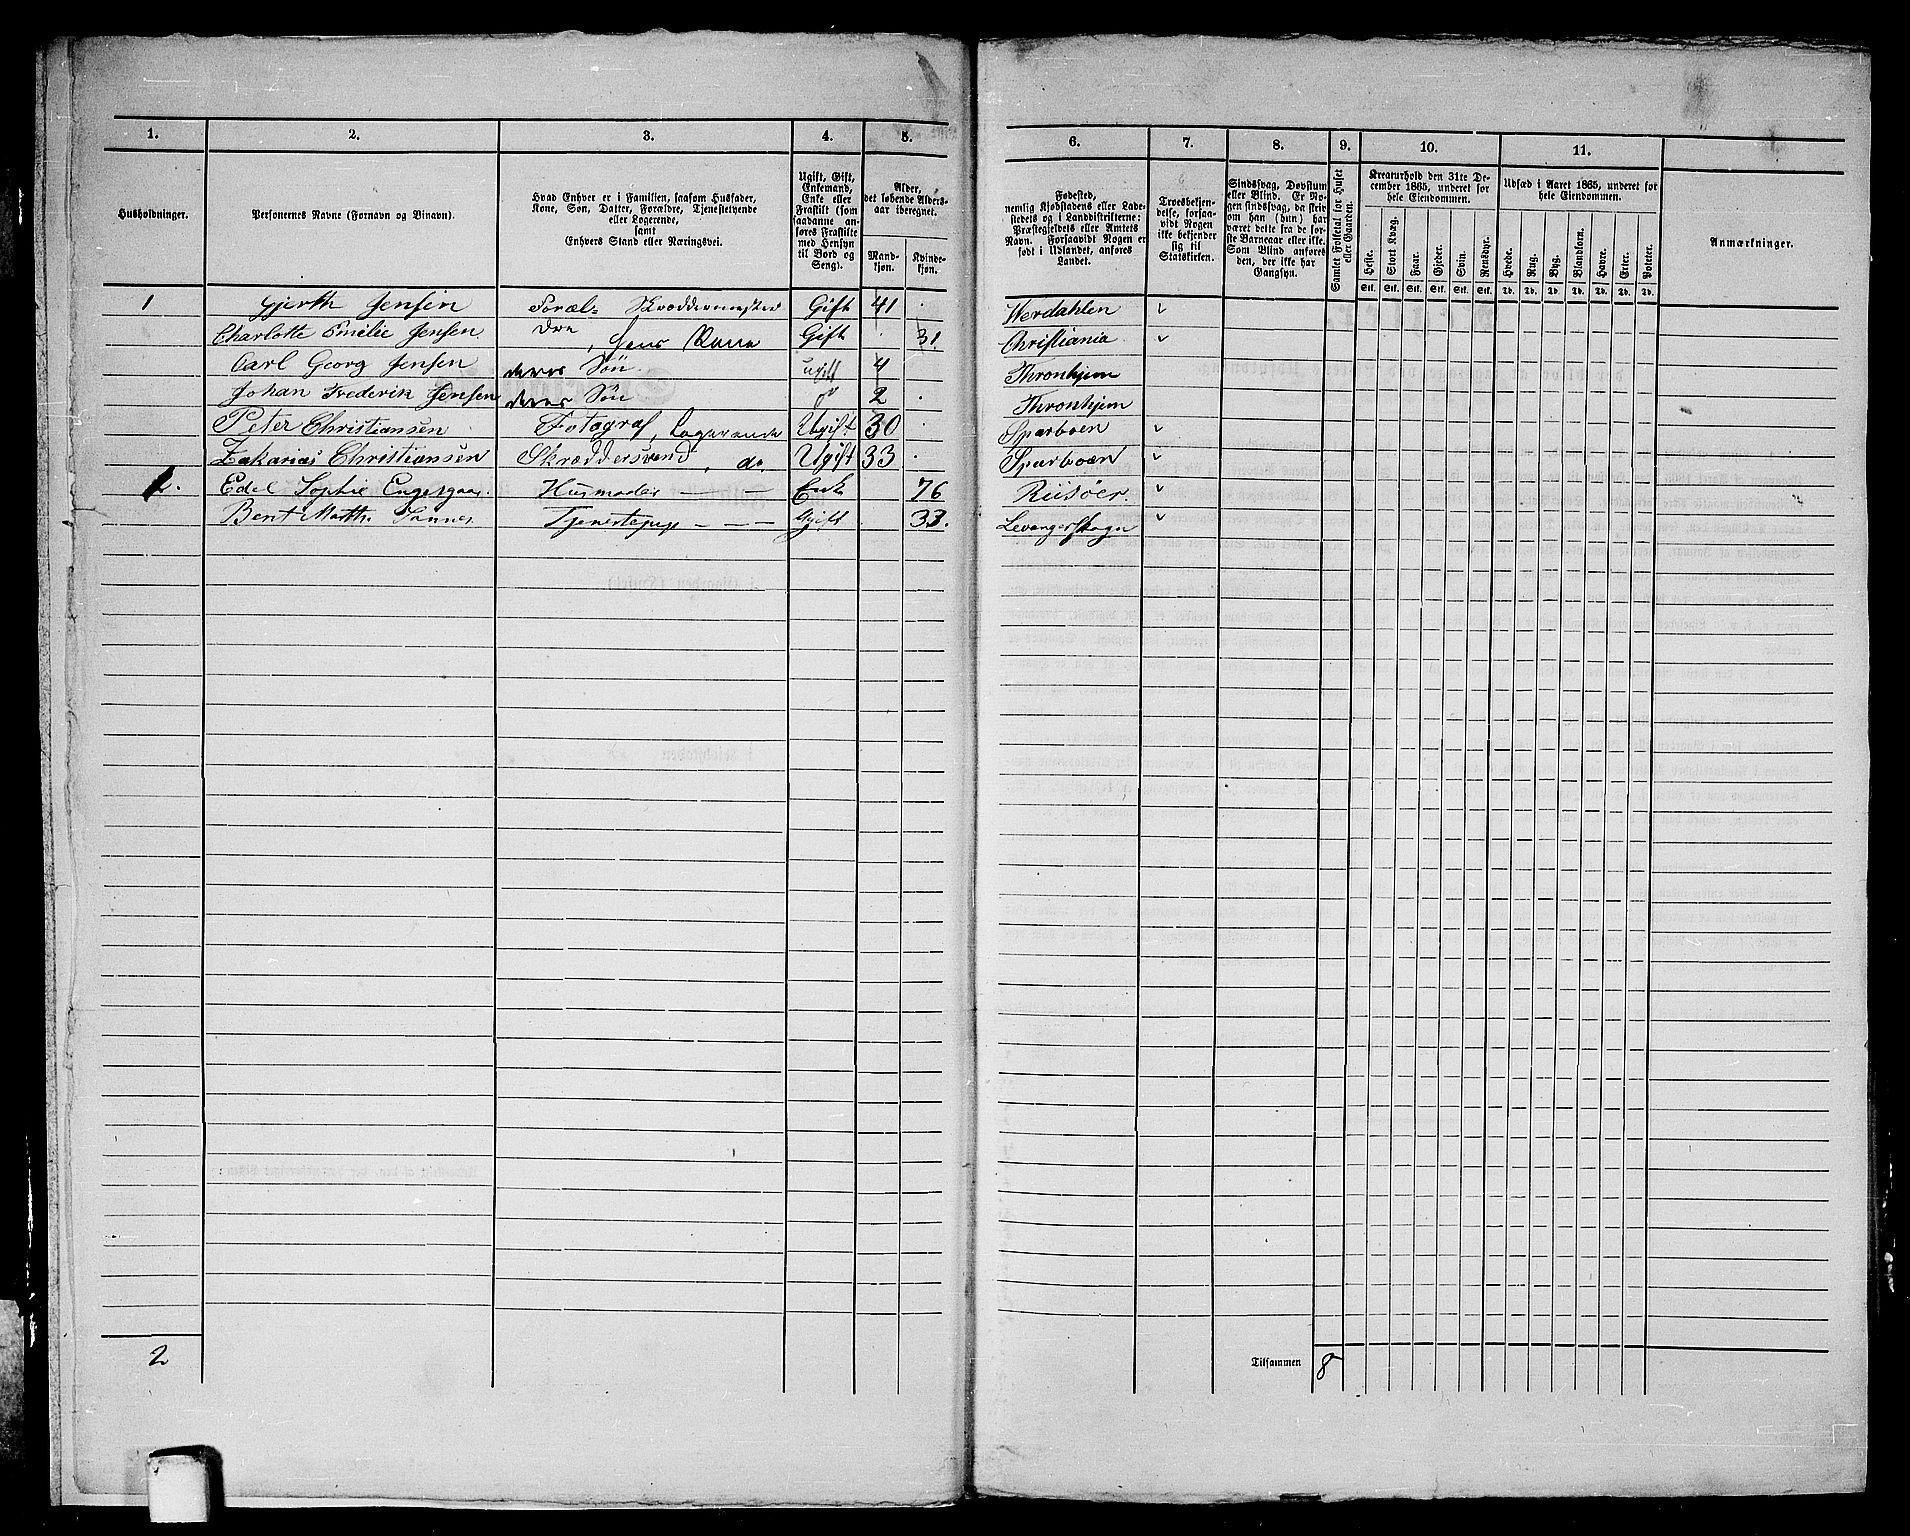 1. 2. 3. 4. 5. 6. 7. 8. 9. 10. 11.
Husholdninger.
Personernes Navne (Fornavn og Binavn).
Hvad Enhver er i Familien, saasom Husfader, Kone, Søn, Datter, Forældre, Tjenestetyende eller Logerende, samt Enhvers Stand eller Næringsvei.
Ugift, Gift, Enkemand, Enke eller Fraskilt (som saadanne anføres Fraskilte med Hensyn til Bord og Seng).
Alder, det løbende Aldersaar iberegnet.
Mandkjøn. Kvindekjøn.
Fødested, nemlig Kjøbstadens eller Ladestedets og i Landdistrikterne: Præstegjeldets eller Amtets Navn. Forsaavidt Nogen er født i Udlandet, anføres Landet.
Troesbekjendelse, forsaavidt Nogen ikke bekjender sig til Statskirken.
Sindssvag, Døvstum eller Blind. Er Nogen sindssvag, da skrives om han (hun) har været dette fra de første Barneaar eller ikke. Som Blind anføres den, der ikke har Gangsyn.
Samlet Folketal for Huset eller Gaarden.
Kreaturhold den 31te December 1865, underet for hele Eiendommen.
Heste. Stort Kvæg. Faar. Gjeder. Svin. Rensdyr.
Stk. Stk. Stk. Stk. Stk. Stk.
Udsæd i Aaret 1865, underet for hele Eiendommen.
Hvede. Rug. Byg. Blandkorn. Havre. Erter. Poteter.
Td. Td. Td. Td. Td. Td. Td.
Anmærkninger.
1 Gjerth Jensen Foræl- Skræddermester Gift 41 Werdahlen
Charlotte Emelie Jensen dre, hans Kone Gift 31. Christiania
Carl Georg Jensen deres Søn ugift 4 Thronhjem
Johan Frederik Jensen deres Søn 2 Thronhjem
Peter Christiansen Fotograf, Logerende Ugift 30 Sparboen
Zakarias Christiansen Skræddersvend, do. Ugift 33 Sparboen
2. Edel Sophie Husmoder Enke 76 Riisøer.
Bent Marth. Ugift 33. Levangerskogn
2
Tilsammen 8